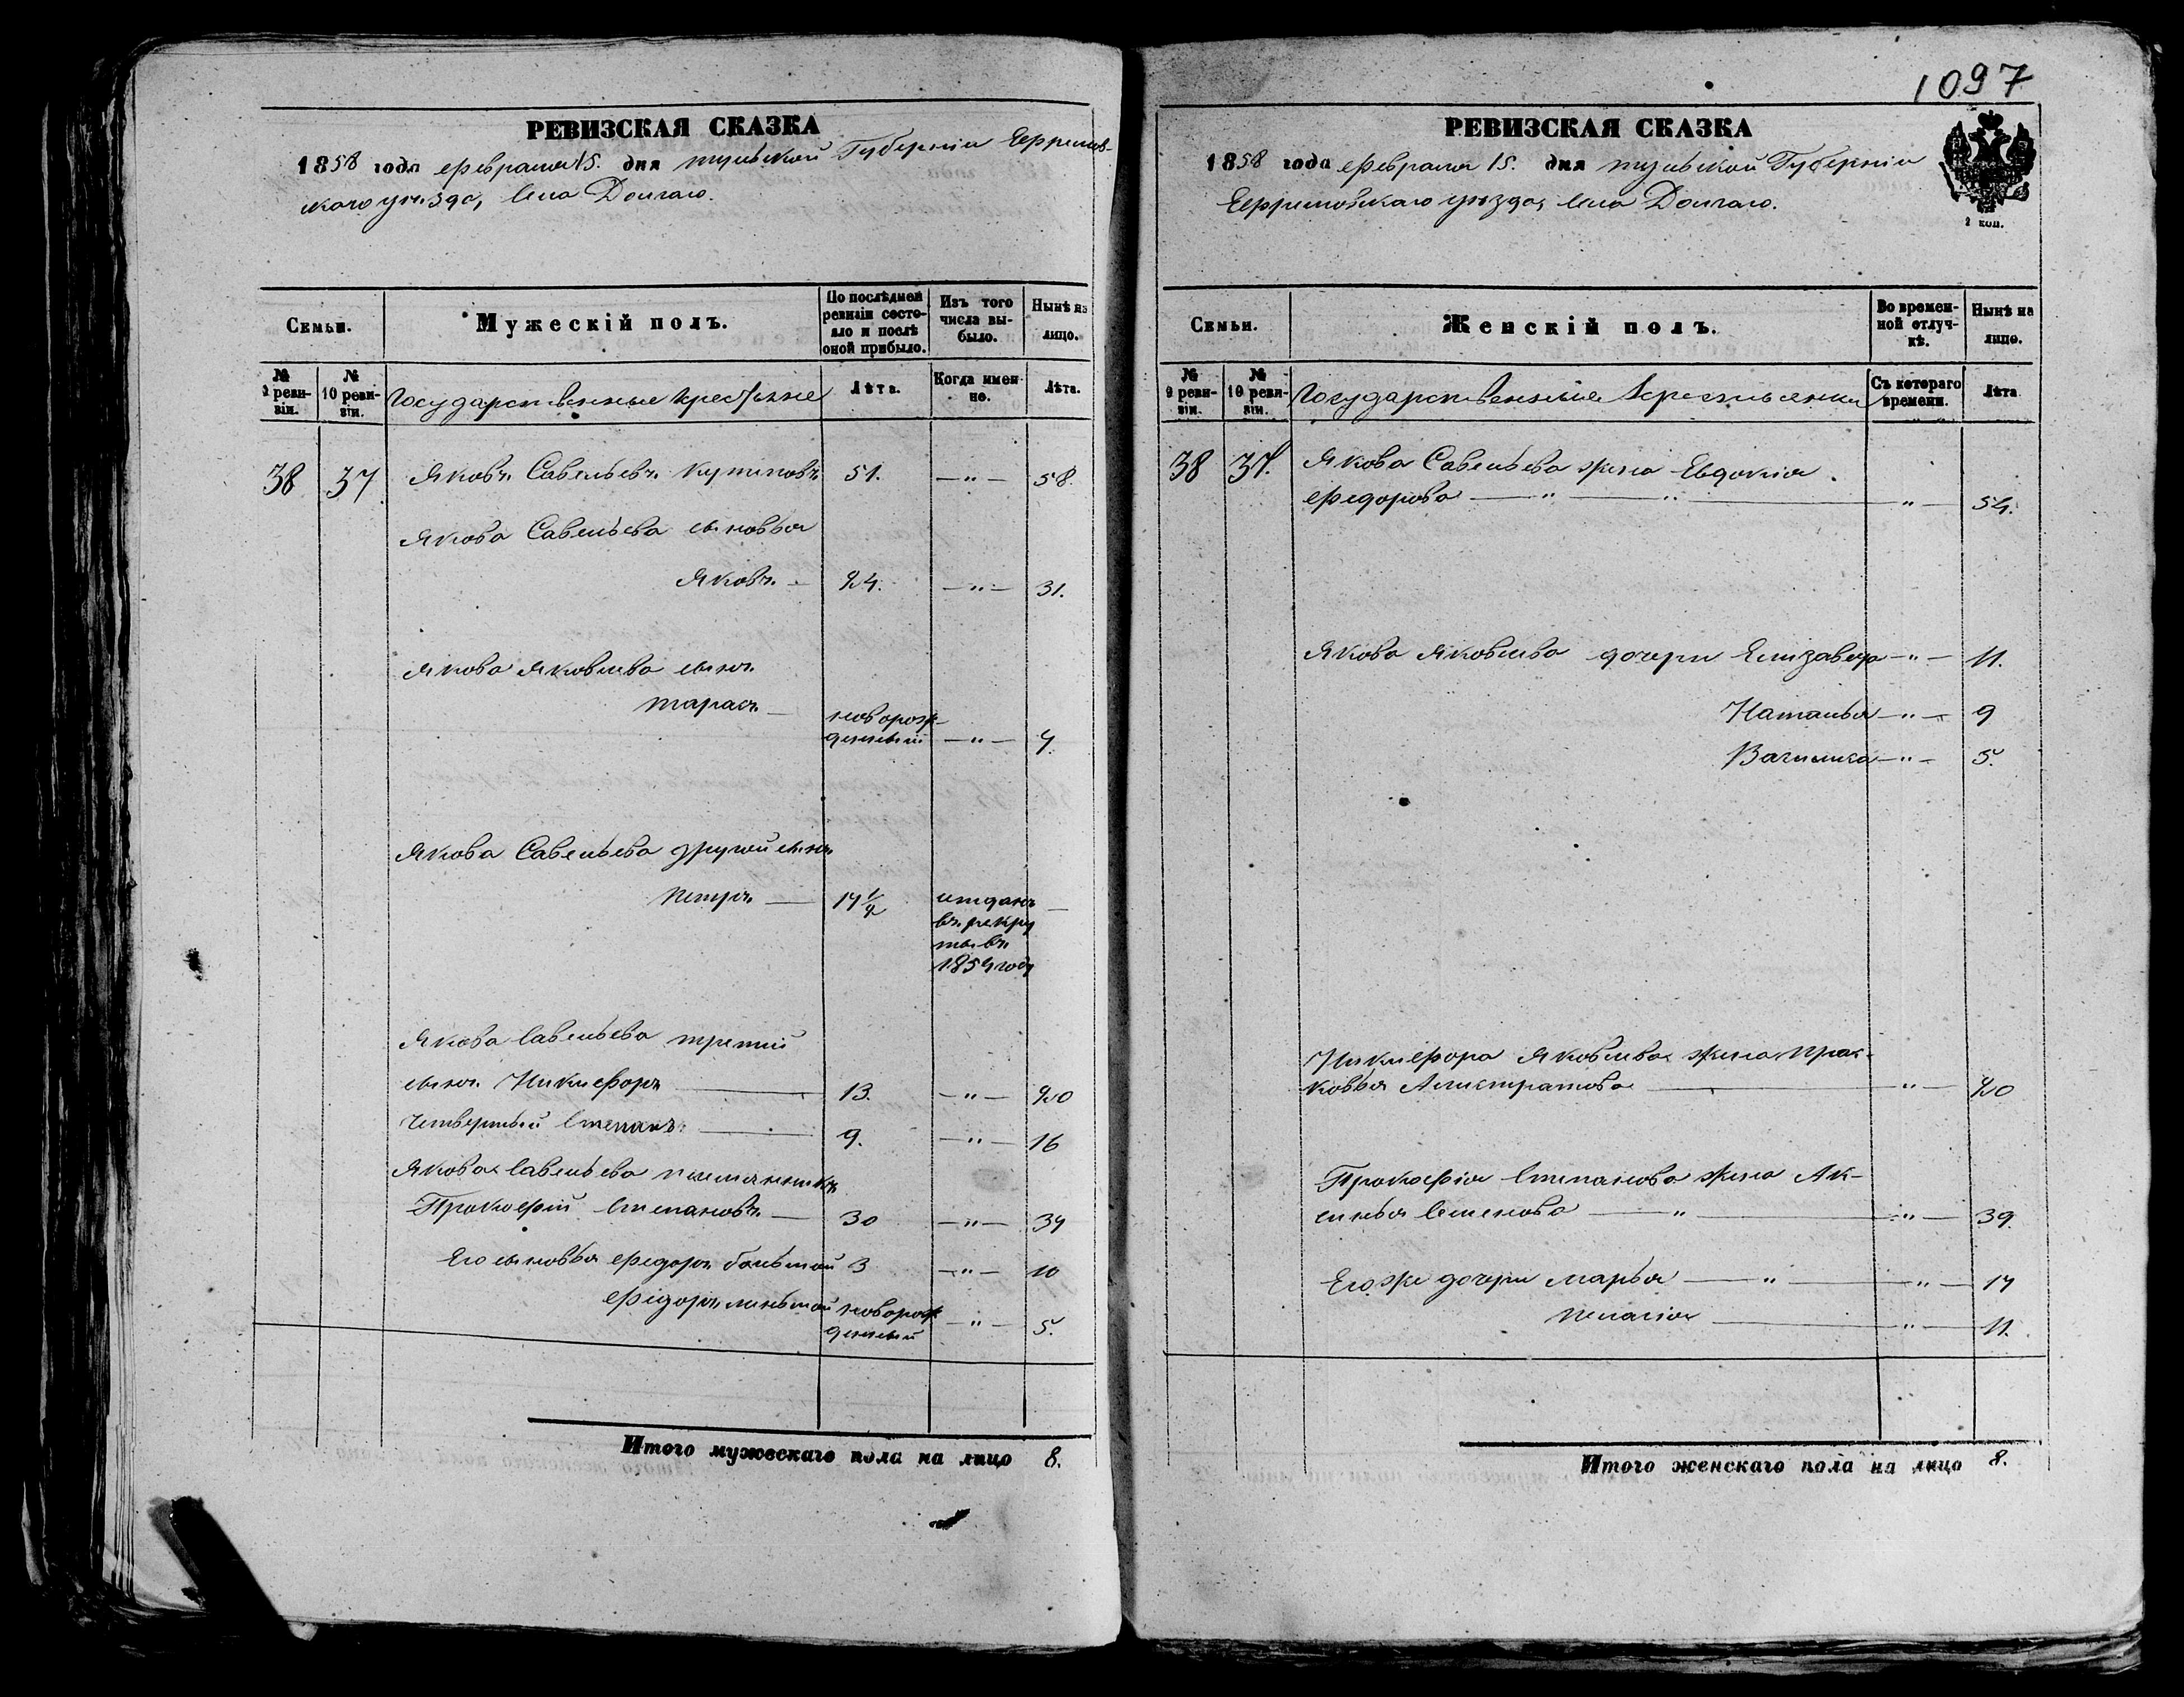 1097
РЕВИЗСКАЯ СКАЗКА
1858 года февраля 15. дня тульской Губерніи Ефремов-
скаго уѣзда, села Долгаго.
Семьи.
Мужескій полъ.
По послѣдней ревизіи состояло и послѣ оной прибыло.
Изъ того числа выбыло.
Нынѣ на лицо.
№ 9 ревизіи.
№ 10 ревизіи.
Государственные крестьяне
Лѣта.
Когда именно.
Лѣта.
38 37 Яковъ Савельевъ 51. —"— 58.
Якова Савельева сыновья
Яковъ — 24. —"— 31.
Якова Яковлева сынъ
тарасъ — новорож-
денный —"— 4.
Якова Савельева другой сынъ
петръ — 17 1/2 отданъ —
въ рекру
ты въ
1854 году
Якова Савельева третій
сынъ Никифоръ — 13. —"— 20
Четвертый Степанъ — 9. —"— 16
Якова Савельева племянникъ
Прокофій Степановъ — 30 —"— 37
Его сыновья Федоръ большой 3 —"— 10
Федоръ меньшой новорож-
денный —"— 5.
Итого мужескаго пола на лицо 8.
РЕВИЗСКАЯ СКАЗКА
1858 года февраля 15. дня тульской Губерніи
Ефремовскаго уѣзда, села Долгаго.
2 коп.
Семьи.
Женскій полъ.
Во временной отлучкѣ.
Нынѣ на лицо.
№ 9 ревизіи.
№ 10 ревизіи.
Государственныя крестьянки
Съ котораго времени.
Лѣта
38 37. Якова Савельева жена Евдокія
Федорова —"—"— " — 54.
Якова Яковлева дочери Елизавета —"— 11.
Наталья —"— 9
—"— 5.
Никифора Яковлева жена прас-
ковья Алистратова — " — 20
Прокофія Степанова жена Ак-
синья Семенова —"— " — 39.
Его же дочери марья —"— " — 17
пелагія — " — 11.
Итого женскаго пола на лицо 8.